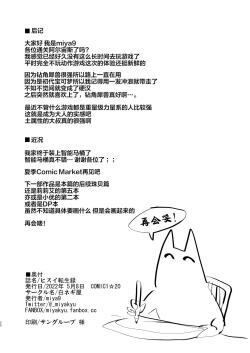 ■ 后记
大家好 我是miya9
各位通关阿尔宙斯了吗?
我感觉已经好久没有这么长时间去玩游戏了
平时完全不玩动作游戏这次的体验还挺新鲜的
因为钻角犀兽很强所以路上一直在用
因为是初代宝可梦所以我记得用一发冲浪就带走了
不知不觉间就变成了硬汉
之后突然就喜欢上了，钻角犀兽真好啊…。
最近不管什么游戏都是重量级力量系的人比较强
这就是成为大人的实感吧
土属性的大叔真的很强啊
■ 近况
我家终于装上智能马桶了
智能马桶真不错… 谢谢各位了；；
夏季Comic Market再见吧
下一部作品是本篇的后续珠贝篇
还是莉莉艾的第五本
亦或是小优的第二本
或者是DP本
虽然不知道具体要画什么 但是会画起来的
再会喽！
再会笑！
■奥付
誌名/ヒスイ転生録
発行日/2022年 5月8日 COMIC1☆20
サークル名/白ネギ屋
発行者/miya9
Twitter/@_miyakyu
FANBOX/miyakyu.fanbox.cc
印刷/サングループ 様